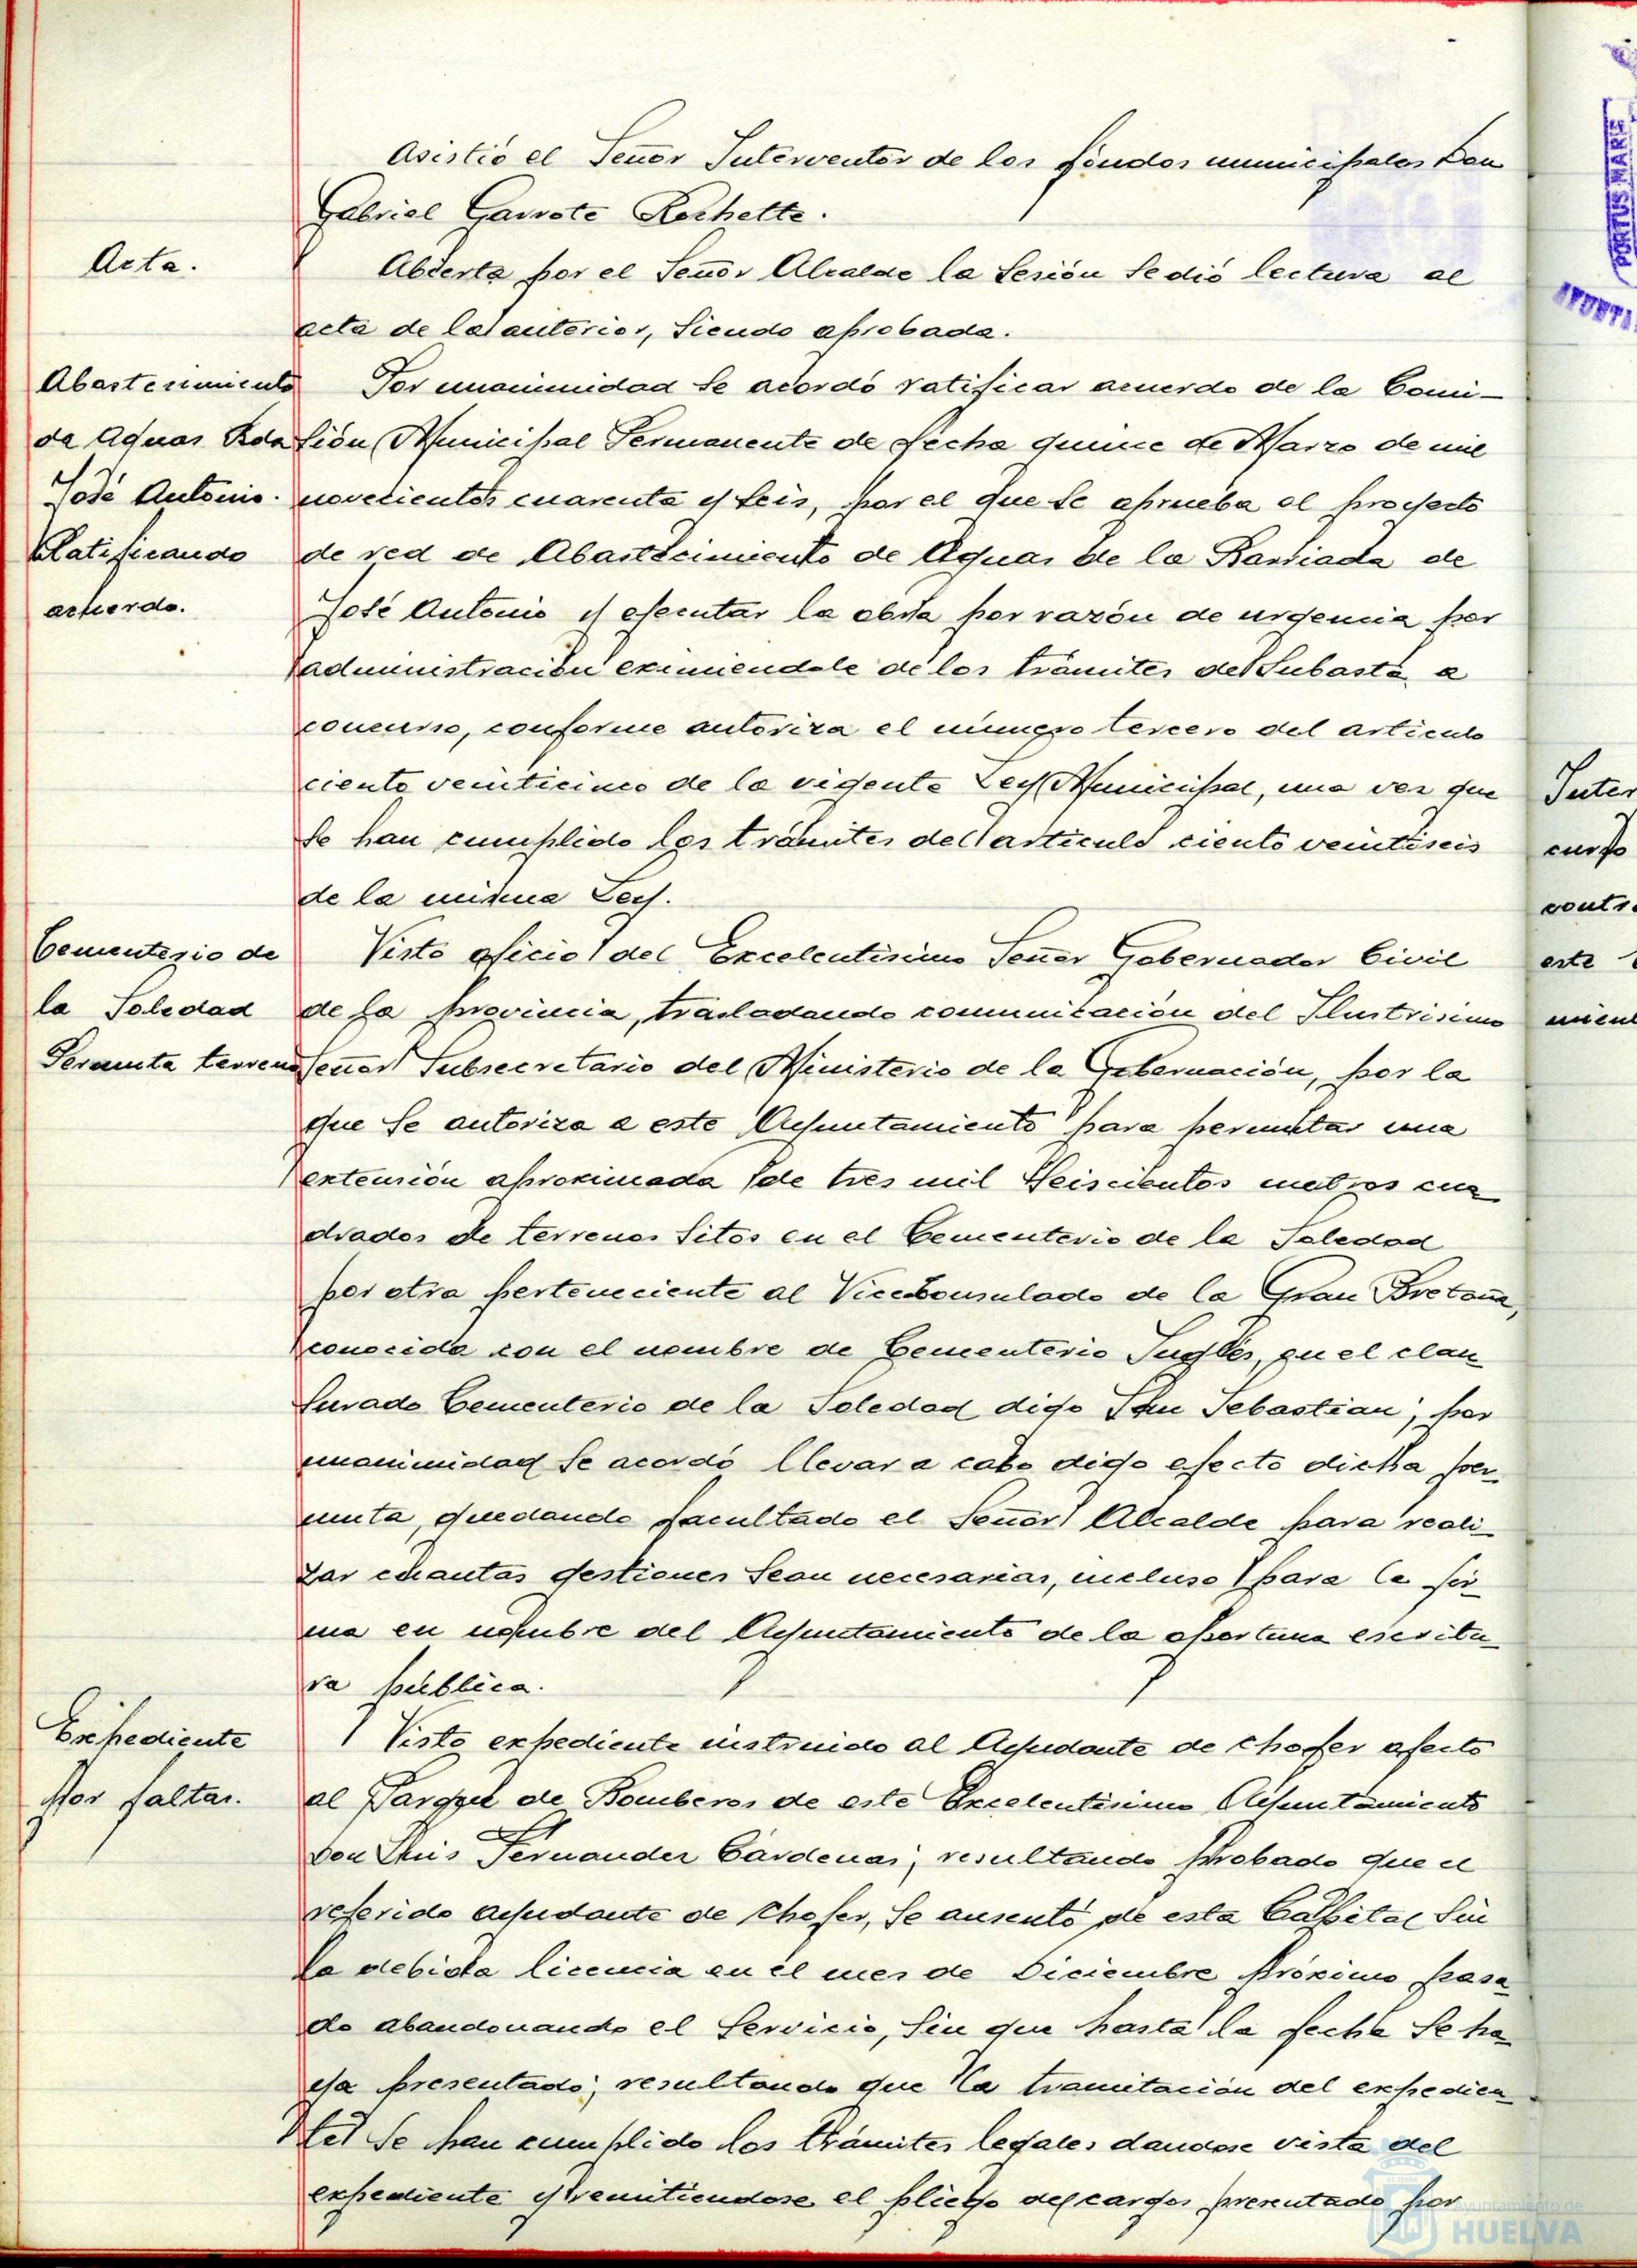 Asistió el Señor Interventor de los fondos municipales Don
Gabriel Garrote Rochette.
Acta.
Abierta por el Señor Alcalde la Sesión se dió lectura al
acta de la anterior, siendo aprobada.
Abastecimiento
de Aguas Bda
José Antonio.
Ratificando
acuerdo.
Por unanimidad se acordó ratificar acuerdo de la Comi-
sión Municipal Permanente de fecha quince de Marzo de mil
novecientos cuarenta y seis, por el que se aprueba el proyecto
de red de Abastecimiento de Aguas de la Barriada de
José Antonio y ejecutar la obra por razón de urgencia por
administración eximiendole de los trámites de Subasta a
concurso, conforme autoriza el número tercero del artículo
ciento veinticinco de la vigente Ley Municipal, una vez que
se han cumplido los trámites del artículo ciento veintiseis
de la misma Ley.
Cementerio de
la Soledad
Permuta terreno
Visto oficio del Excelentísimo Señor Gobernador Civil
de la provincia, trasladando comunicación del Ilustrísimo
Señor Subsecretario del Ministerio de la Gobernación, por la
que se autoriza a este Ayuntamiento para permutar una
extensión aproximada de tres mil seiscientos metros cua
drados de terrenos sitos en el Cementerio de la Soledad
por otra perteneciente al ViceConsulado de la Gran Bretaña,
conocida con el nombre de Cementerio Inglés, en el clau
surado Cementerio de la Soledad digo San Sebastian; por
unanimidad se acordó llevar a cabo digo efecto dicha per
muta, quedando facultado el Señor Alcalde para reali
zar cuantas gestiones sean necesarias, incluso para la fir
ma en nombre del Ayuntamiento de la oportuna escritu
ra pública.
Expediente
por faltas.
Visto expediente instruido al Ayudante de chofer afecto
al Parque de Bomberos de este Excelentísimo Ayuntamiento
Don Luis Fernandez Cárdenas; resultando probado que el
referido ayudante de chofer, se ausentó de esta Capital sin
la debida licencia en el mes de Diciembre próximo pasa
do abandonando el Servicio, sin que hasta la fecha se ha
ya presentado; resultando que la tramitación del expedien
te se han cumplido los trámites legales dandose vista del
expediente y remitiendose el pliego de cargos presentado por
PORTUS MARIS
Inter
curso
contr
este
mient
Ayuntamiento de
HUELVA